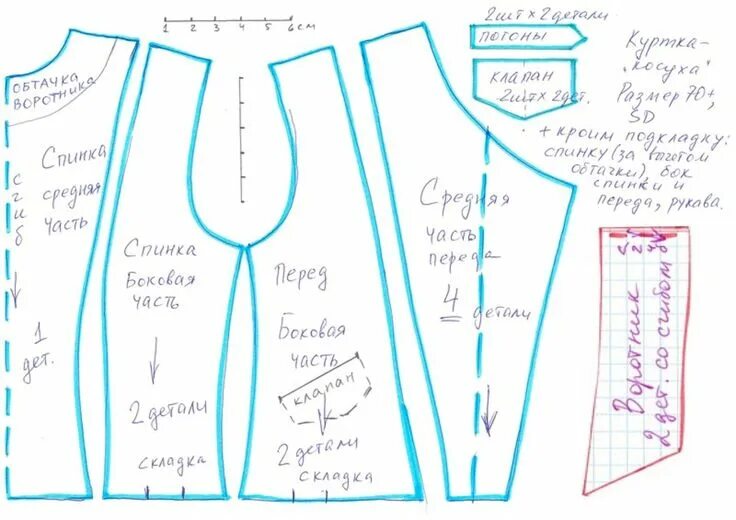 1 2 3 4 5 6 см
2шт х 2детали
погоны
клапан
2шт х 2дет.
Куртка-
"косуха"
Размер 70+,
SD
+ кроим подкладку:
спинку (за вычетом
обтачки), бок
спинки и
переда, рукава.
обтачка
воротника
Спинка
средняя
часть
сгиб
1
дет.
Спинка
Боковая
часть
2 детали
складка
Перед
Боковая
часть
клапан
2 детали
складка
Средняя
часть
переда
4 детали
Воротник
2 дет. со сгибом